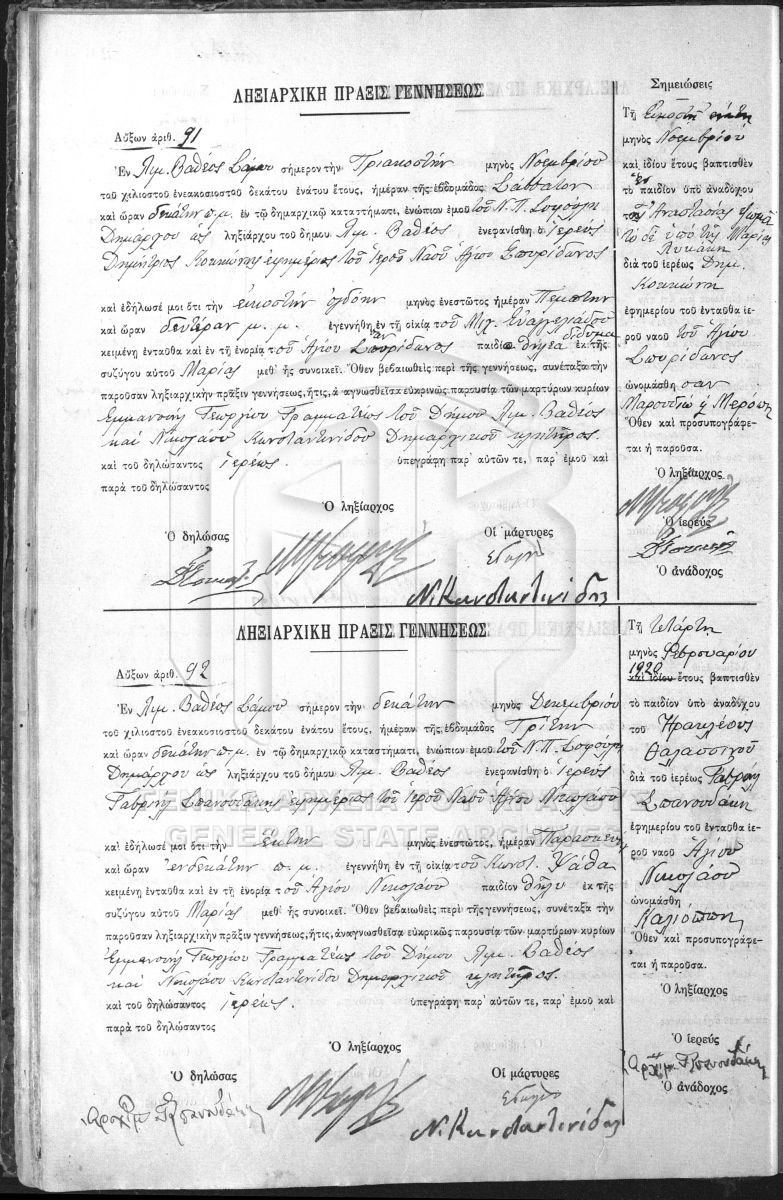 ΛΗΞΙΑΡΧΙΚΗ ΠΡΑΞΙΣ ΓΕΝΝΗΣΕΩΣ
Αὔξων ἀριθ. 91
Ἐν Λιμ. Βαθέος Σάμου σήμερον τὴν Τριακοστὴν μηνὸς Νοεμβρίου
τοῦ χιλιοστοῦ ἐνεακοσιοστοῦ δεκάτου ἐνάτου ἔτους, ἡμέραν τῆς ἑβδομάδος Σάββατον
καὶ ὥραν δεκάτην π.μ. ἐν τῷ δημαρχικῷ καταστήματι, ἐνώπιον ἐμοῦ τοῦ Ν. Π. Σοφούλη
Δημάρχου ὡς ληξιάρχου τοῦ δήμου Λιμ. Βαθέος ἐνεφανίσθη ὁ ἱερεὺς
Δημήτριος Κοκκώνης ἐφημέριος τοῦ ἱεροῦ Ναοῦ Ἁγίου Σπυρίδωνος
καὶ ἐδήλωσέ μοι ὅτι τὴν εἰκοστὴν ὀγδόην μηνὸς ἐνεστῶτος ἡμέραν Πέμπτην
καὶ ὥραν δευτέραν μ.μ. ἐγεννήθη ἐν τῇ οἰκίᾳ τοῦ Μιχ. Εὐαγγελινοῦ
κειμένῃ ἐνταῦθα καὶ ἐν τῇ ἐνορίᾳ τοῦ Ἁγίου Σπυρίδωνος παιδία θήλεα δίδυμα ἐκ τῆς
συζύγου αὐτοῦ Μαρίας μεθ' ἧς συνοικεῖ. Ὅθεν βεβαιωθεὶς περὶ τῆς γεννήσεως, συνέταξα τὴν
παροῦσαν ληξιαρχικὴν πρᾶξιν γεννήσεως, ἥτις, ἀναγνωσθεῖσα εὐκρινῶς παρουσίᾳ τῶν μαρτύρων κυρίων
Ἐμμανουὴλ Γεωργίου Γραμματέως τοῦ Δήμου Λιμ. Βαθέος
καὶ Νικολάου Κωνσταντινίδου Δημαρχικοῦ κλητῆρος
καὶ τοῦ δηλώσαντος ἱερέως. ὑπεγράφη παρ' αὐτῶν τε, παρ' ἐμοῦ καὶ
παρὰ τοῦ δηλώσαντος
Ὁ ληξίαρχος
Ὁ δηλώσας Οἱ μάρτυρες
Ν. Κωνσταντινίδης
Σημειώσεις
Τῇ Εἰκοστῇ
μηνὸς Νοεμβρίου
καὶ ἰδίου ἔτους βαπτισθὲν
τὸ παιδίον ὑπὸ ἀναδόχου
Ἀναστασίας
τὸ δὲ ὑπὸ τῆς Μαρίας
διὰ τοῦ ἱερέως Δημ.
Κοκκώνη
ἐφημερίου τοῦ ἐνταῦθα ἱε-
ροῦ ναοῦ τοῦ Ἁγίου
Σπυρίδωνος
ὠνομάσθησαν
Ὅθεν καὶ προσυπογράφε-
ται ἡ παροῦσα.
Ὁ ληξίαρχος
Ὁ ἱερεύς
Ὁ ἀνάδοχος
ΛΗΞΙΑΡΧΙΚΗ ΠΡΑΞΙΣ ΓΕΝΝΗΣΕΩΣ
Αὔξων ἀριθ. 92
Ἐν Λιμ. Βαθέος Σάμου σήμερον τὴν δεκάτην μηνὸς Δεκεμβρίου
τοῦ χιλιοστοῦ ἐνεακοσιοστοῦ δεκάτου ἐνάτου ἔτους, ἡμέραν τῆς ἑβδομάδος Τρίτην
καὶ ὥραν δεκάτην π.μ. ἐν τῷ δημαρχικῷ καταστήματι, ἐνώπιον ἐμοῦ τοῦ Ν. Π. Σοφούλη
Δημάρχου ὡς ληξιάρχου τοῦ δήμου Λιμ. Βαθέος ἐνεφανίσθη ὁ ἱερεὺς
Γαβριὴλ Σπανουδάκης ἐφημέριος τοῦ ἱεροῦ Ναοῦ Ἁγίου Νικολάου
ΓΕΝΙΚΑ ΑΡΧΕΙΑ ΤΟΥ ΚΡΑΤΟΥΣ
GENERAL STATE ARCHIVES
καὶ ἐδήλωσέ μοι ὅτι τὴν ἕκτην μηνὸς ἐνεστῶτος, ἡμέραν Παρασκευὴν
καὶ ὥραν ἑνδεκάτην π.μ. ἐγεννήθη ἐν τῇ οἰκίᾳ τοῦ Κωνστ. Ψάθα
κειμένῃ ἐνταῦθα καὶ ἐν τῇ ἐνορίᾳ τοῦ Ἁγίου Νικολάου παιδίον θῆλυ ἐκ τῆς
συζύγου αὐτοῦ Μαρίας μεθ' ἧς συνοικεῖ. Ὅθεν βεβαιωθεὶς περὶ τῆς γεννήσεως, συνέταξα τὴν
παροῦσαν ληξιαρχικὴν πρᾶξιν γεννήσεως, ἥτις, ἀναγνωσθεῖσα εὐκρινῶς παρουσίᾳ τῶν μαρτύρων κυρίων
Ἐμμανουὴλ Γεωργίου Γραμματέως τοῦ Δήμου Λιμ. Βαθέος
καὶ Νικολάου Κωνσταντινίδου Δημαρχικοῦ κλητῆρος.
καὶ τοῦ δηλώσαντος ἱερέως. ὑπεγράφη παρ' αὐτῶν τε, παρ' ἐμοῦ καὶ
παρὰ τοῦ δηλώσαντος
Ὁ ληξίαρχος
Ὁ δηλώσας Οἱ μάρτυρες
Ν. Κωνσταντινίδης
Τῇ τετάρτῃ
μηνὸς Φεβρουαρίου
1920
καὶ ἰδίου ἔτους βαπτισθὲν
τὸ παιδίον ὑπὸ ἀναδόχου
τοῦ Ἡρακλέους
Θαλασσινοῦ
διὰ τοῦ ἱερέως Γαβριὴλ
Σπανουδάκη
ἐφημερίου τοῦ ἐνταῦθα ἱε-
ροῦ ναοῦ Ἁγίου
Νικολάου
ὠνομάσθη
Καλιόπη
Ὅθεν καὶ προσυπογράφε-
ται ἡ παροῦσα.
Ὁ ληξίαρχος
Ὁ ἱερεύς
Ὁ ἀνάδοχος